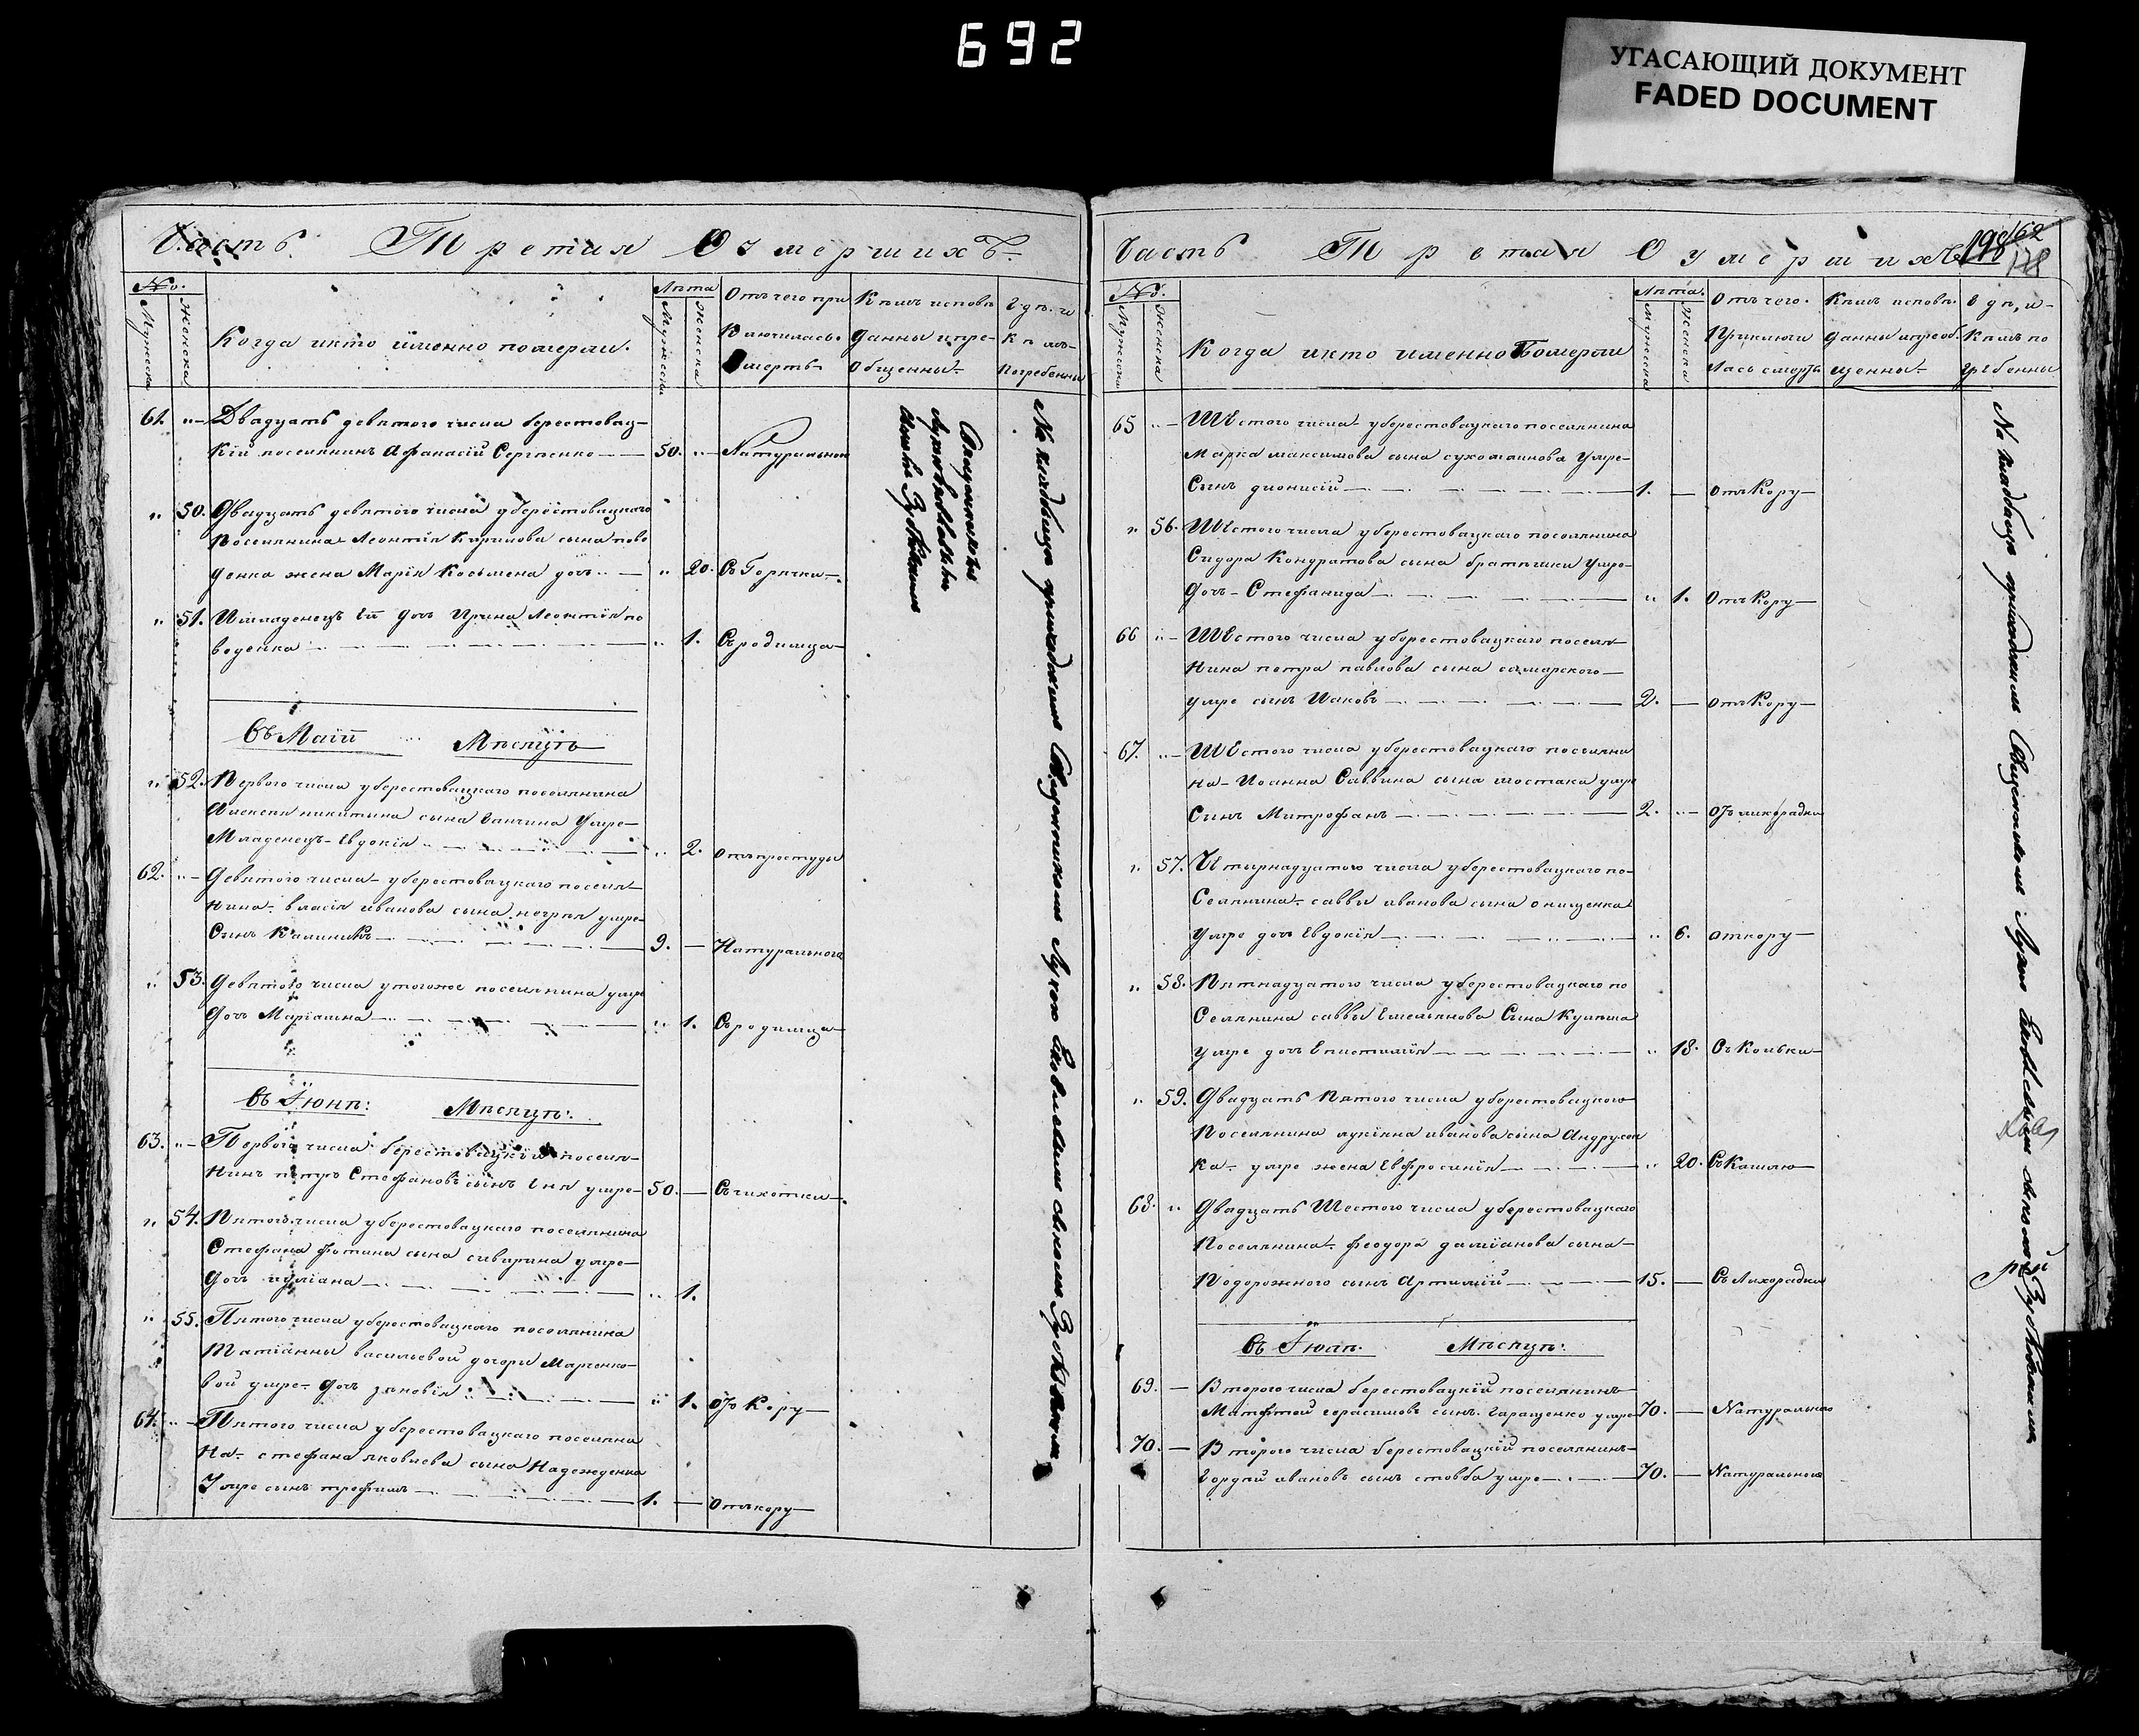 692
УГАСАЮЩИЙ ДОКУМЕНТ
FADED DOCUMENT
Часть Третия О умершихъ
No.
Мужеска
Женска
Когда икто именно померли.
Лѣта
Мужеска
Женска
Отъ чего при
ключилась
Смерть
Кѣмъ исповѣ
даны ипре-
общенны
Гдѣ и
Кѣмъ
погребенны
61. Двадцать девятого числа берестовац-
кій поселянинъ Афанасій Сергіенко 50. Натуральной
50. Двадцать девятого числа уберестовацкаго
Поселянина Леонтія Кирилова сына пово
денка жена Марія Косьмена дочь 20. Съ Горячки
51. Имладенецъ дочь Ирина Леонтія по
воденка 1. Съ родимца
Священникомъ
Лукою
Зубковымъ
На кладбище приходскимъ Священникомъ Лукою Зубковымъ
Въ Маіи Мѣсяцѣ
52. Первого числа уберестовацкаго поселянина
Алексея никитина сына Ганчина Умре
Младенецъ Евдокія 2. Отъ простуды
62. Девятого числа уберестовацкаго поселя-
нина власія иванова сына негрея умре
Сынъ Калиникъ 9. Натуральной
53. Девятого числа утогоже поселянина умре
Дочь Маріанна 1. Съ родимца
Въ Іюнѣ: Мѣсяцѣ:
63. Первого числа берестовацкій поселя-
нинъ петръ Стефановъ сынъ умре 50. Съ чихотки
54. Пятого числа уберестовацкаго поселянина
Стефана фотина сына сивирина умре
Дочь иуліана 1.
55. Пятого числа уберестовацкаго поселянина
Татіанны васильевой дочери Марченко-
вой умре дочь зиновія 1. Отъ Кору
64. Пятого числа уберестовацкаго поселяни
на стефана яковлева сына Надежденка
Умре сынъ трофимъ 1. Отъ кору
Часть Третая О умершихъ
198
162
178
No.
Мужеска
Женска
Когда икто именно Померли
Лѣта.
Мужеска
Женска
Отъ чего.
Приключи
лась смерть
Кѣмъ исповѣ
данны ипреоб.
щенны
Гдѣ, и
Кѣмъ по
гребенны
65 Шестого числа уберестовацкаго поселянина
Марка максимова сына сухомлинова Умре
Сынъ дионисій 1. Отъ Кору
56. Шестого числа уберестовацкаго поселянина
Сидора Кондратова сына братышки Умре
Дочь Стефанида 1. Отъ Кору
66 Шестого числа уберестовацкаго поселя-
нина петра павлова сына самарского
умре сынъ Иаковъ 2. Отъ Кору
67. Шестого числа уберестовацкаго поселяни
на Иоанна Саввина сына шостака умре
Синъ Митрофанъ 2. Отъ лихорадки
57. Четырнадцатого числа уберестовацкаго по-
Селянина саввы иванова сына онищенка
Умре дочь Евдокія 6. Откору
58. Пятнадцатого числа уберестовацкаго по
Селянина саввы Емельянова Сына
умре дочь Епистимія 18. Съ Кольки
59. Двадцать Пятого числа уберестовацкого
Поселянина лукіяна иванова сына Андрусен
ка умре жена Евфросинія 20. Съ Кашлю
68. Двадцать Шестого числа уберестовацкаго
Поселянина феодора даміанова сына
Подорожного сынъ Артимій 15. Съ Лихорадки
На кладбище приходскимъ Священникомъ Лукою Зубковымъ
Въ Іюлѣ. Мѣсяцѣ:
69. Второго числа берестовацкій поселянинъ
Матфей герасимовъ сынъ Гаращенко умре 70. Натурально
70. Второго числа берестовацкій поселянинъ
Гордѣй ивановъ сынъ стовба умре 70. Натуральной